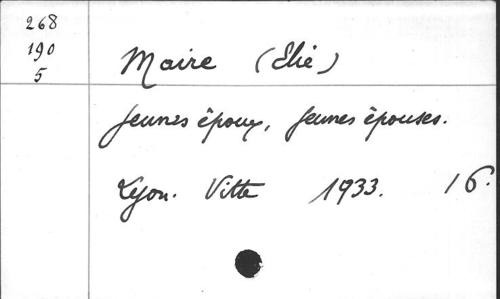 268
190
5
Maire (Elie)
Jeunes époux, Jeunes épouses.
Lyon. Vitte 1933. 16.